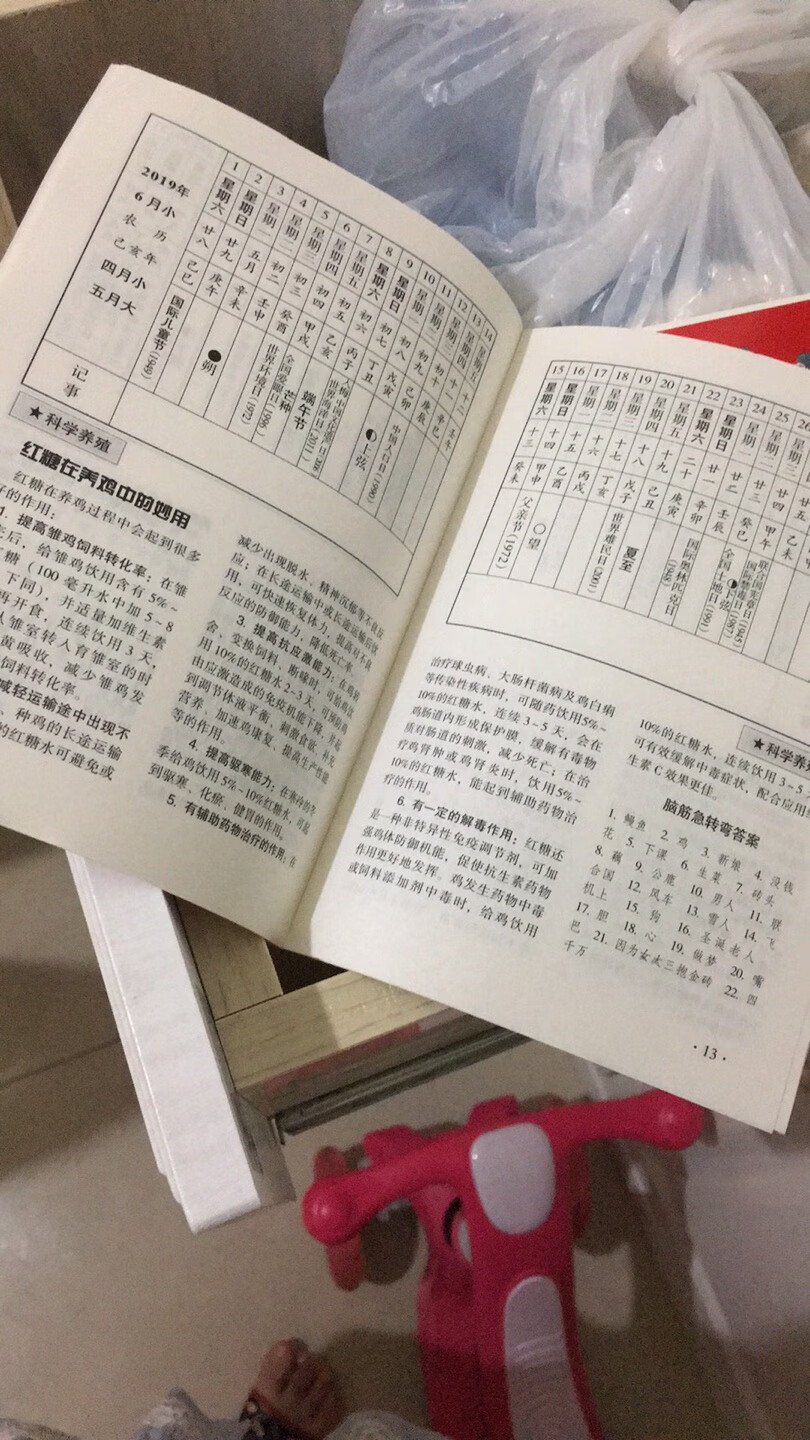 2019年
6月小
农 历
己亥年
四月小
五月大
1 2 3 4 5 6 7 8 9 10 11 12 13 14
星期六 星期日 星期一 星期二 星期三 星期四 星期五 星期六 星期日 星期一 星期二 星期三 星期四 星期五
廿八 廿九 五月 初二 初三 初四 初五 初六 初七 初八 初九 初十 十一 十二
己巳 庚午 辛未 壬申 癸酉 甲戌 乙亥 丙子 丁丑 戊寅 己卯 庚辰 辛巳 壬午
国际儿童节(1949)
●朔
世界环境日(1972)
全国爱眼日(1996)
芒种
端午节
入梅
上弦
中国人口日(1990)
记事
★科学养殖
红糖在养鸡中的妙用
红糖在养鸡过程中会起到很多
好的作用：
1. 提高雏鸡饲料转化率：在雏
后，给雏鸡饮用含有5%~
糖（100毫升水中加5~8
下同），并适量加维生素
再开食，连续饮用3天，
雏室转入育雏室的时
黄吸收，减少雏鸡发
饲料转化率。
减轻运输途中出现不
、种鸡的长途运输
的红糖水可避免或
减少出现脱水、精神沉郁等不良反
应；在长途运输中或长途运输后饮
用，可快速恢复体力，提高对不良
反应的防御能力，降低死亡率。
3. 提高抗应激能力：在鸡转
舍、变换饲料、断喙时，可给鸡饮
用10%的红糖水2~3天，可预防鸡
由应激造成的免疫机能下降，并起
到调节体液平衡、刺激食欲、补充
营养、加速鸡康复、提高生产性能
等的作用。
4. 提高驱寒能力：在寒冷的冬
季给鸡饮用5%~10%红糖水，可起
到驱寒、化瘀、健胃的作用。
5. 有辅助药物治疗的作用：在
15 16 17 18 19 20 21 22 23 24 25 26
星期六 星期日 星期一 星期二 星期三 星期四 星期五 星期六 星期日 星期一 星期二 星期三
十三 十四 十五 十六 十七 十八 十九 二十 廿一 廿二 廿三 廿四
癸未 甲申 乙酉 丙戌 丁亥 戊子 己丑 庚寅 辛卯 壬辰 癸巳 甲午 乙未
父亲节(1972)
○望
世界难民日(2001)
夏至
国际奥林匹克日(1948)
全国土地日(1991)
下弦
国际禁毒日(1987)
联合国宪章日(1945)
治疗球虫病、大肠杆菌病及鸡白痢
等传染性疾病时，可随药饮用5%~
10%的红糖水，连续3~5天，会在
鸡肠道内形成保护膜，缓解有毒物
质对肠道的刺激，减少死亡；在治
疗鸡肾肿或鸡肾炎时，饮用5%~
10%的红糖水，能起到辅助药物治
疗的作用。
6. 有一定的解毒作用：红糖还
是一种非特异性免疫调节剂，可加
强鸡体防御机能，促使抗生素药物
作用更好地发挥。鸡发生药物中毒
或饲料添加剂中毒时，给鸡饮用
★科学养殖
10%的红糖水，连续饮用3~5天
可有效缓解中毒症状，配合应用维
生素C效果更佳。
脑筋急转弯答案
1. 鳗鱼 2. 鸡 3. 新娘 4. 没钱
花 5. 下课 6. 生菜 7. 砖头
8. 藕 9. 公鹿 10. 男人 11. 联
合国 12. 风车 13. 雪人 14. 飞
机上 15. 狗 16. 圣诞老人
17. 胆 18. 心 19. 做梦 20. 嘴
巴 21. 因为女大三抱金砖 22. 四
千万
·13·